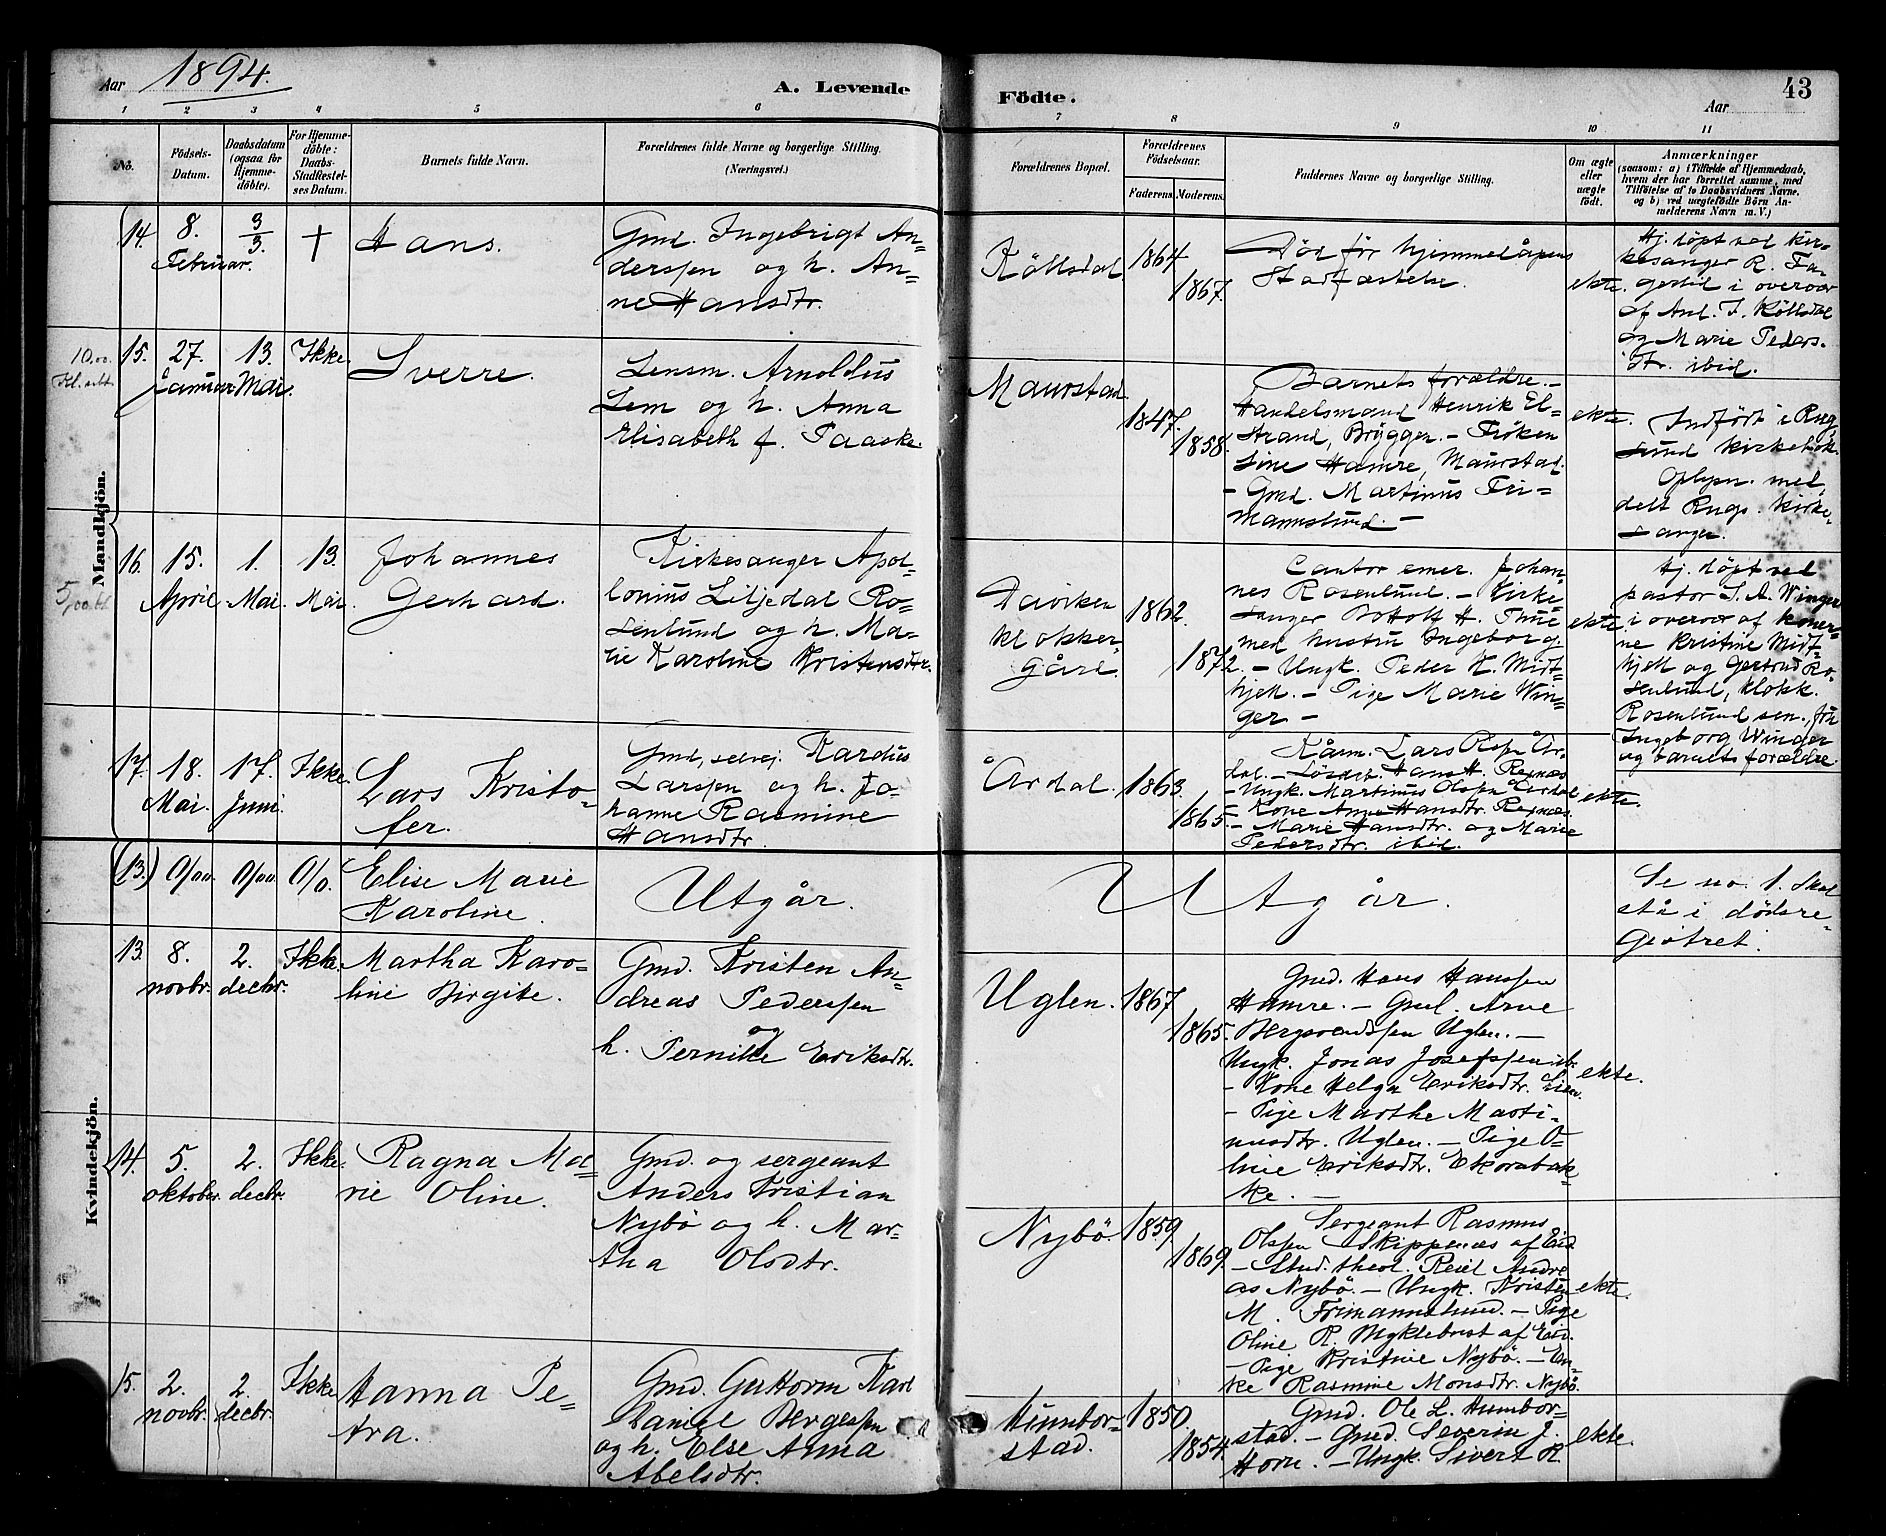 Aar 1894.
A. Levende
Födte.
Aar
43
1 2 3 4 5 6 7 8 9 10 11
No.
Födsels-
Datum.
Daabsdatum
(ogsaa for
Hjemme-
döbte).
For Hjemme-
döbte:
Daabs-
Stadfæstel-
ses Datum.
Barnets fulde Navn.
Forældrenes fulde Navne og borgerlige Stilling.
(Næringsvei.)
Forældrenes Bopæl.
Forældrenes
Födselsaar.
Faderens. Moderens.
Faddernes Navne og borgerlige Stilling.
Om ægte
eller
uægte
födt.
Anmærkninger
(saasom: a) i Tilfælde af Hjemmedaab,
hvem der har forrettet samme, med
Tilföielse af to Daabsvidners Navne,
og b) ved uægtefödte Börn An-
melderens Navn m. V.)
Mandkjön.
14.
8.
Februar.
3/3.
†
Hans.
Gmd. Ingebrigt An-
derssen og h. An-
ne Hansdtr.
Röllsdal
1864
1867.
Död för hjemmedåpens
Stadfæstelse.
ekte.
Hj. döpt ved kir-
kesanger R. Fa-
gerlid i overvær
af And. I. Röllsdal
og Marie Peders-
dtr. ibid.
10.00
15.
27.
januar
13.
Mai.
Ikke.
Sverre.
Lensm. Arnoldus
Lem og h. Anna
Elisabeth f. Paaske.
Maurstad.
1847.
1858.
Barnets forældre. –
Handelsmand Henrik El-
strand, Bryggen. – Fröken
Line Hamre, Maurstad.
– Gmd. Martinus Fri-
mannslund. –
ekte.
Indfört i Rug-
sund kirkebok.
Oplysn. med-
delt Rugs. kirke-
sanger.
5
16.
15.
April
1.
Mai.
13.
Mai.
Johannes
Gerhard.
Kirkesanger Apol-
lonius Liljedal Ro-
senlund og h. Ma-
lie Karoline Kristensdtr.
Daviken
klokker-
gård.
1862.
1872.
Cantor emer. Johan-
nes Rosenlund. – Kirke-
sanger Bottolf H. Thue
med hustru Ingeborg
– Ungk. Peder K. Midt-
hjell. – Pige Marie Win-
ger –
ekte.
Hj. döpt ved
pastor S. A. Winger
i overvær af koner-
ne Kristine Midt-
hjell og Gertrud Ro-
senlund, klokk.
Rosenlund sen., frk
Ingeborg Winger
og barnets forældre.
17.
18.
Mai.
17.
Juni.
Ikke.
Lars Kristo-
fer.
Gmd, selvej. Kardius
Larssen og h. Jo-
hanne Rasmine
Hansdtr.
Årdal.
1863.
1865.
Kårm. Lars Olsen År-
dal. – Hans H. Rejnæs
– Ungk. Martinus Olsen Årdal
– Kone Anne Hansdtr. Rejnæs.
– Marie Hansdtr. og Marie
Pedersdtr. ibid.
ekte.
(13.)
0/00.
0/00.
0/0.
Elise Marie
Karoline.
Utgår.
Utgår.
Se no. 1. Skal
stå i dödsre-
gistret.
Kvindekjön.
13.
8.
novbr.
2.
decbr.
Ikke.
Martha Karo-
line Birgite.
Gmd. Kristen An-
dreas Pederssen
og
h. Pernille Eriksdtr.
Uglen.
1867
1865.
Gmd. Hans Hanssen
Hamre. – Gmd. Arne
Bergsvendssen Uglen. –
Ungk. Jonas Josefssen ib.
– Kone Helga Eriksdtr. Lien.
– Pige Marthe Marti-
nusdtr. Uglen. – Pige O-
line Eriksdtr. Ekorabak-
ke. –
ekte.
14.
5.
oktober.
2.
decbr.
Ikke.
Ragna Ma-
rie Oline.
Gmd. og sergeant
Anders Kristian
Nybö og h. Mar-
tha Olsdtr.
Nybö.
1859
1869
Sergeant Rasmus
Olssen Skippenæs af Eid
– Stud. theol. Andre-
as Nybö. – Ungk. Kristen
M. Frimannslund. – Pige
Oline R. Myklebust af Eid.
– Pige Kristine Nybö. – En-
ke Rasmine Monsdtr. Nybö.
ekte.
15.
2.
novbr.
2.
decbr.
Ikke
Hanna Pe-
tra.
Gmd. Guttorm Karl
Daniel Bergessen
og h. Else Anna
Abelsdtr.
Humbor-
stad.
1850.
1854.
Gmd. Ole L. Humbor-
stad. – Gmd. Severin J.
Horn. – Ungk. Sivert R.
ekte.